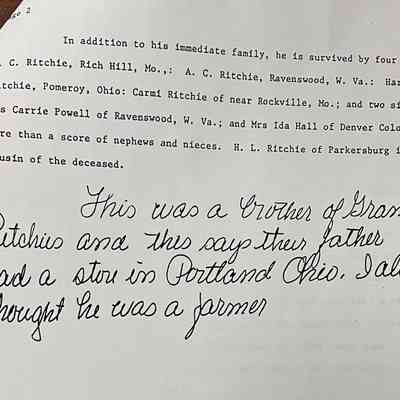 2
In addition to his immediate family, he is survived by four
C. Ritchie, Rich Hill, Mo.,: A. C. Ritchie, Ravenswood, W. Va.: Har
itchie, Pomeroy, Ohio: Carmi Ritchie of near Rockville, Mo.; and two si
s Carrie Powell of Ravenswood, W. Va.; and Mrs Ida Hall of Denver Colo
re than a score of nephews and nieces. H. L. Ritchie of Parkersburg i
usin of the deceased.
This was a brother of Gran
Ritchies and this says their father
had a store in Portland Ohio. I al
thought he was a farmer